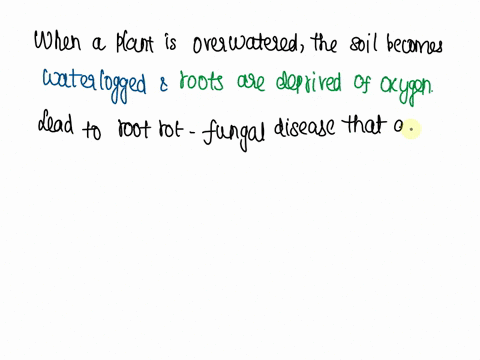 When a plant is overwatered, the soil becomes
waterlogged & roots are deprived of oxygen.
Lead to root rot - fungal disease that